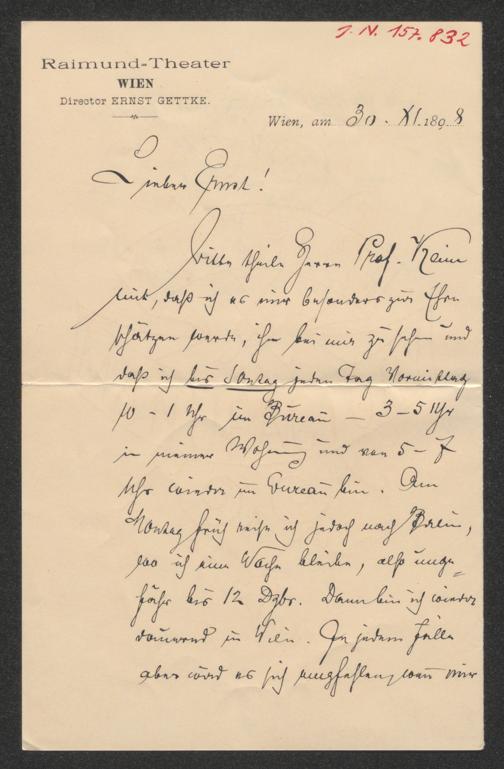 J. N. 157.832
Raimund-Theater
WIEN
Director ERNST GETTKE.
Wien, am 30. XI. 1898
Lieber Ernst!
Bitte theile Herrn Prof. Keim
mit, daß ich es mir besonders zur Ehre
schätzen werde, ihn bei mir zu sehen und
daß ich bis Sontag jeden Tag Vormittag
10 - 1 Uhr im Bureau — 3-5 Uhr
in meiner Wohnung und von 5-7
Uhr wieder im Bureau bin. Am
Montag früh reise ich jedoch nach Berlin,
wo ich eine Woche bleibe, also unge=
fähr bis 12 Dzbr. Dann bin ich wieder
dauernd in Wien. In jedem Falle
aber wird es sich empfehlen, wenn mir